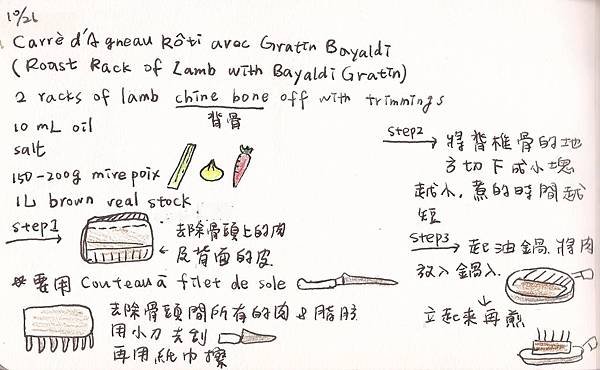 10/26
Carrè d'Agneau Rôti avec Gratin Bayaldi
(Roast Rack of Lamb with Bayaldi Gratin)
2 racks of lamb chine bone off with trimmings
背骨
10 mL oil
salt
150-200g mirepoix
1L brown veal stock
step1
去除骨頭上的肉
及背面的皮
* 要用 Couteau à filet de sole
去除骨頭間所有的肉&脂肪
用小刀去刮
再用紙巾擦
step2 將脊椎骨的地
方切下成小塊
越小,煮的時間越
短
step3 起油鍋.將肉
放入鍋入.
立起來再煎